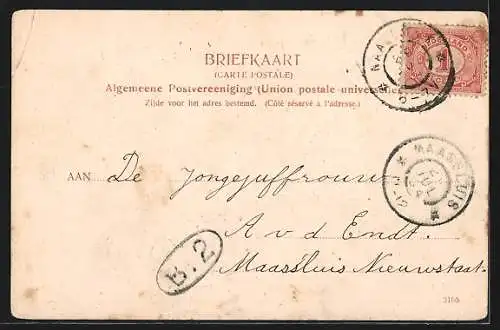 BRIEFKAART
(CARTE POSTALE)
Algemeene Postvereeniging (Union postale universelle)
Zijde voor het adres bestemd. (Côté réservé à l'adresse.)
NAA
MAASSLUIS
AAN De Jongejuffrouw
A v d Endt.
B.2
Maassluis Nieuwstaat
3165